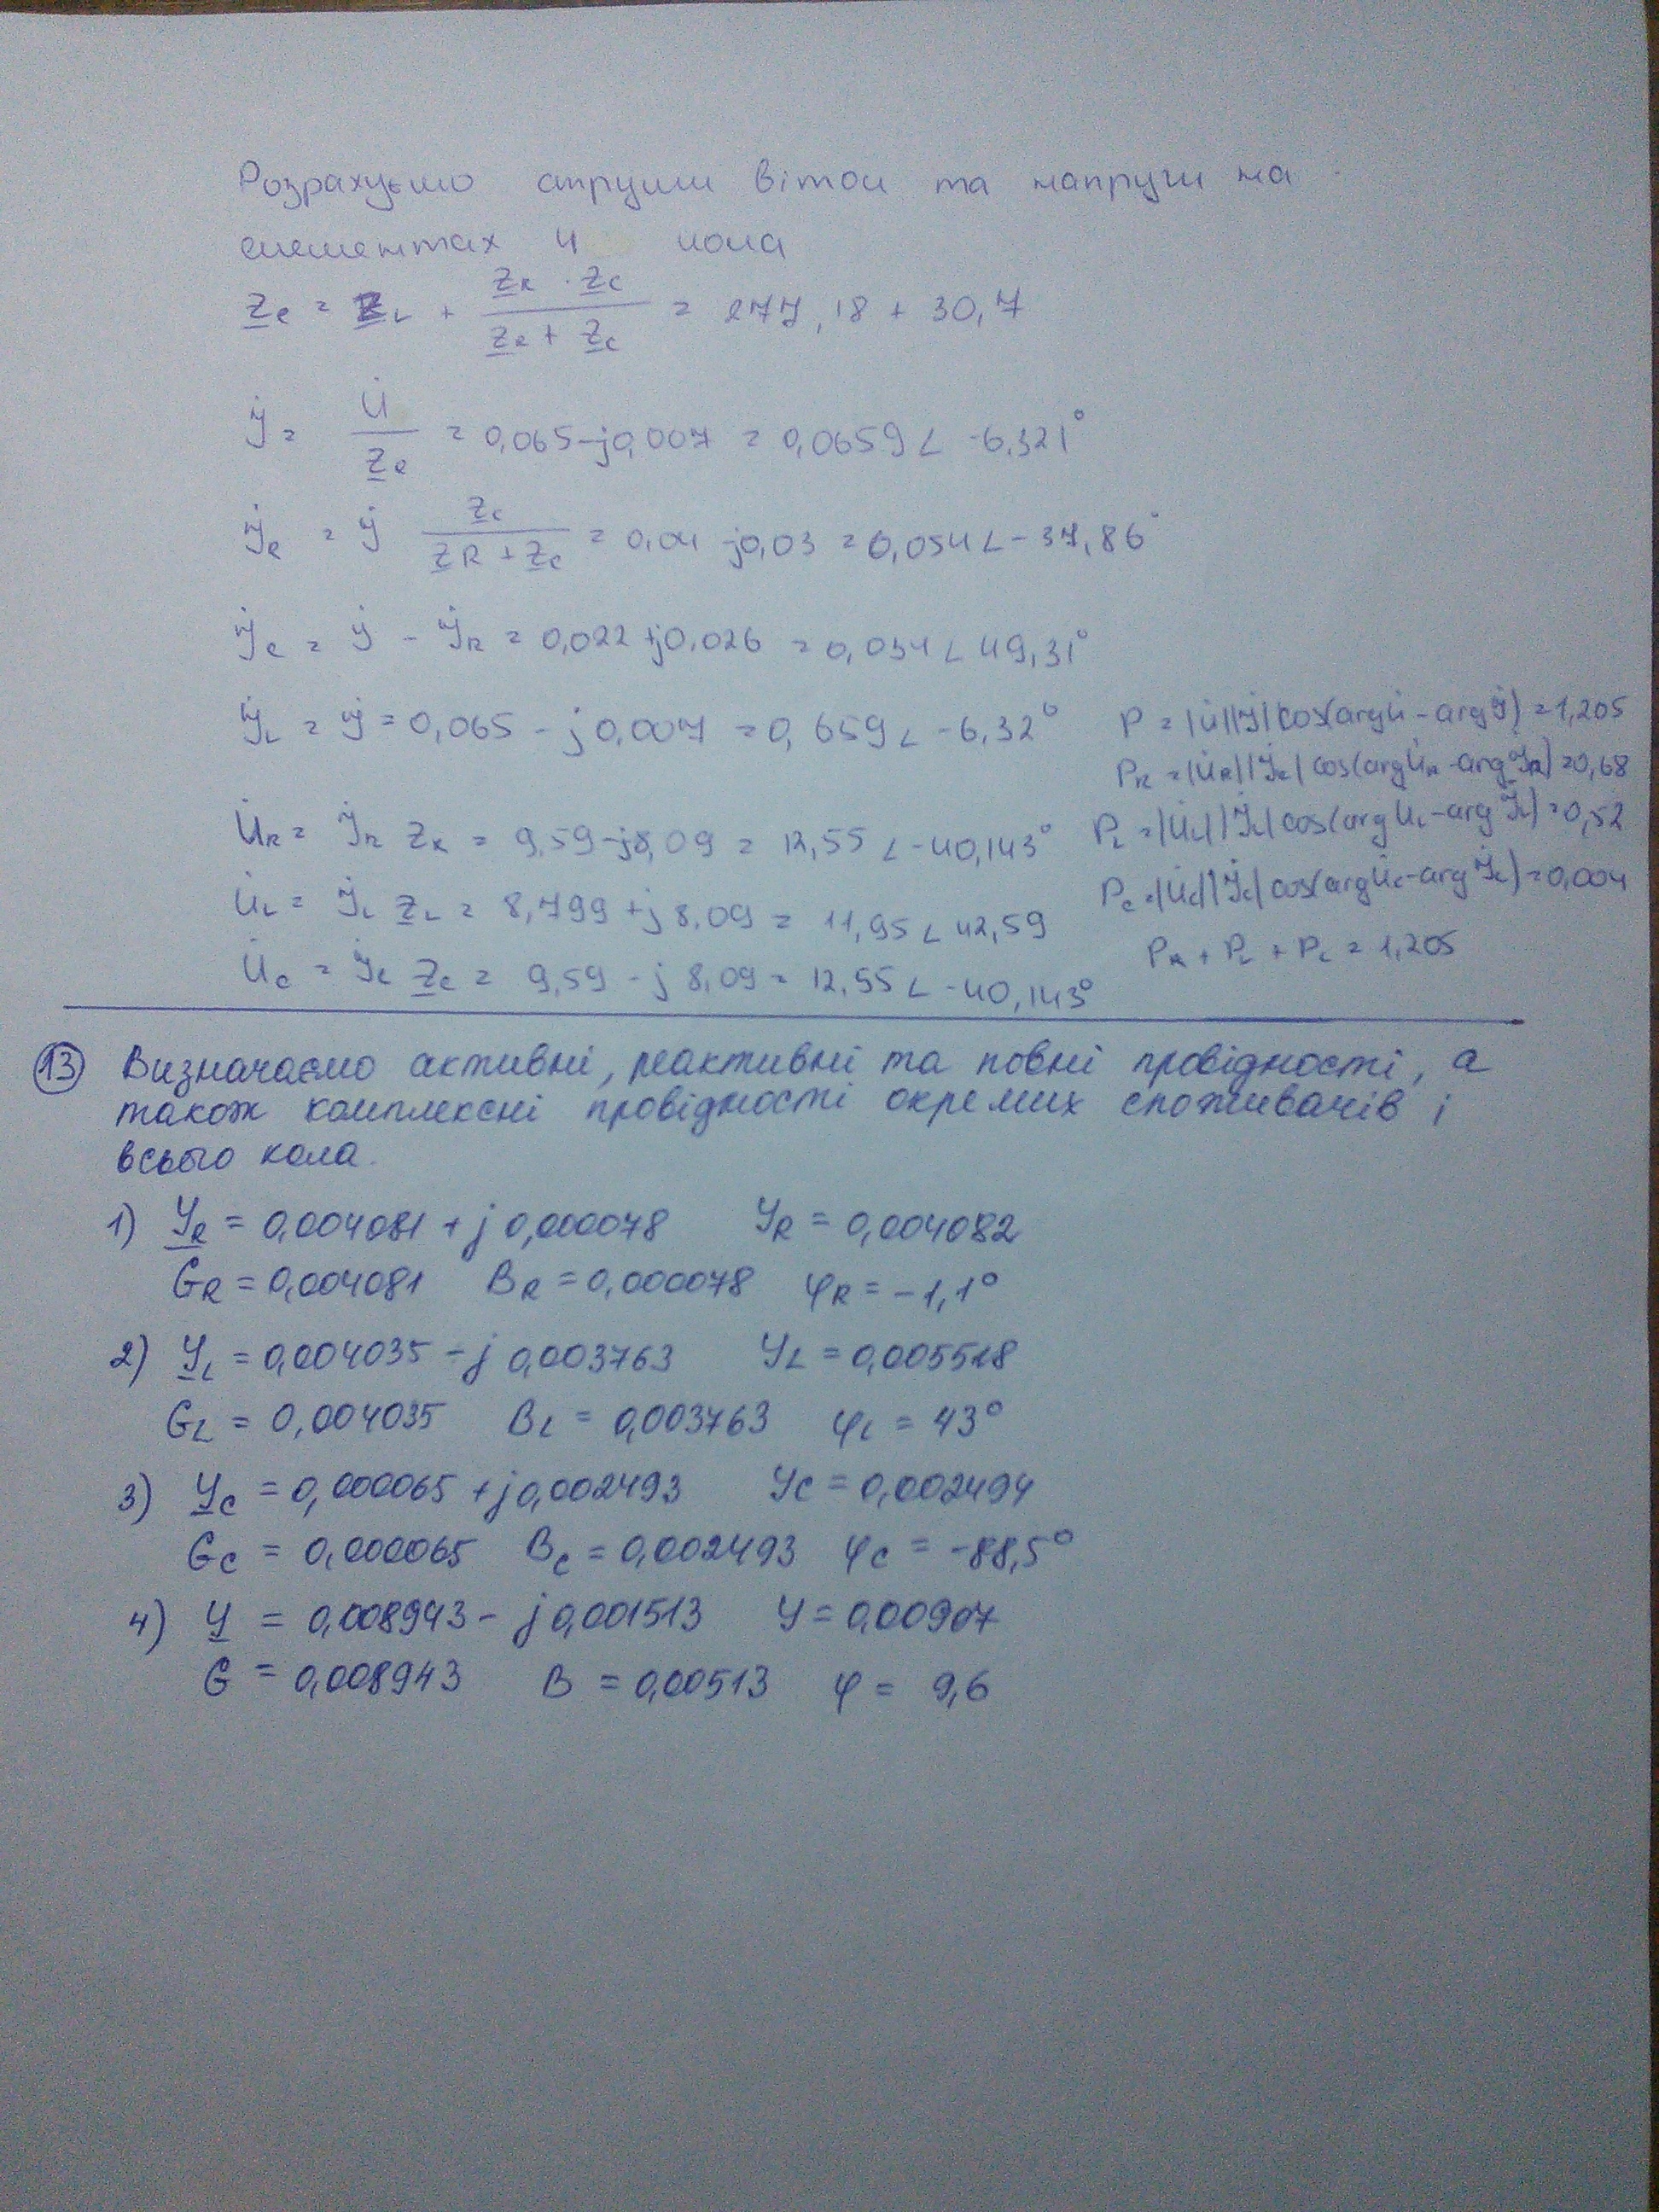 Розрахуємо струми віток та напруги на
елементах 4 кола
Z̲е = Z̲L + Z̲R · Z̲C / Z̲R + Z̲C = 277,18 + 30,7
İ = U̇ / Z̲е = 0,065 - j0,007 = 0,0659 ∠ -6,321°
İR = İ Z̲C / Z̲R + Z̲C = 0,04 - j0,03 = 0,054 ∠ -37,86°
İC = İ - İR = 0,022 + j0,026 = 0,034 ∠ 49,31°
İL = İ = 0,065 - j0,007 = 0,659 ∠ -6,32°
U̇R = İR Z̲R = 9,59 - j8,09 = 12,55 ∠ -40,143°
U̇L = İL Z̲L = 8,799 + j8,09 = 11,95 ∠ 42,59
U̇C = İC Z̲C = 9,59 - j8,09 = 12,55 ∠ -40,143°
P = |U̇||İ| cos(argU̇ - argİ) = 1,205
PR = |U̇R||İR| cos(argU̇R - argİR) = 0,68
PL = |U̇L||İL| cos(argU̇L - argİL) = 0,52
PC = |U̇C||İC| cos(argU̇C - argİC) = 0,004
PR + PL + PC = 1,205
13 Визначаємо активні, реактивні та повні провідності, а
також комплексні провідності окремих споживачів і
всього кола.
1) Y̲R = 0,004081 + j0,000078 YR = 0,004082
GR = 0,004081 BR = 0,000078 φR = -1,1°
2) Y̲L = 0,004035 - j0,003763 YL = 0,005518
GL = 0,004035 BL = 0,003763 φL = 43°
3) Y̲C = 0,000065 + j0,002493 YC = 0,002494
GC = 0,000065 BC = 0,002493 φC = -88,5°
4) Y̲ = 0,008943 - j0,001513 Y = 0,00907
G = 0,008943 B = 0,00513 φ = 9,6